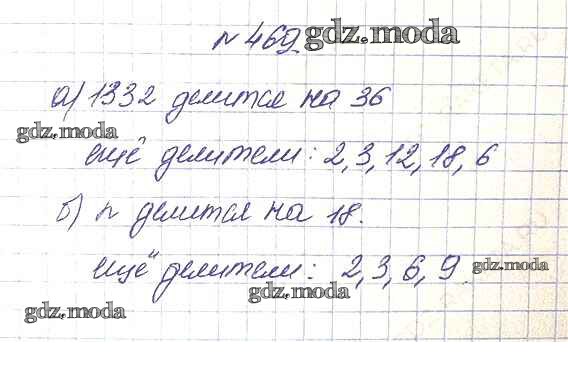 № 469 gdz.moda
а) 1332 делится на 36
gdz.moda
ещё делители: 2, 3, 12, 18, 6
б) n делится на 18.
ещё делители: 2, 3, 6, 9 gdz.moda
gdz.moda
gdz.moda